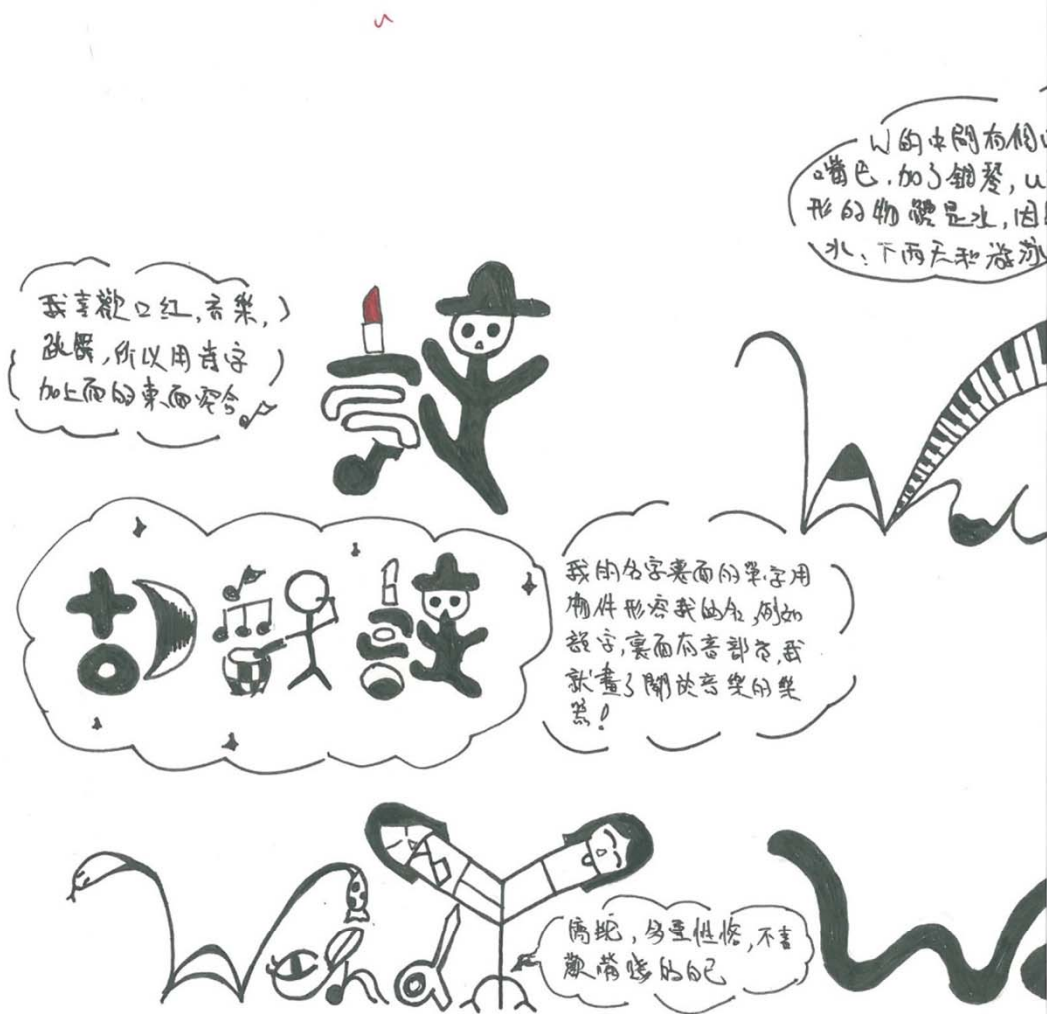 W的中間有個
嘴巴,加了鋼琴,u
形的物體是水,因
水、下雨天和游泳
我喜歡口紅,音樂,
跳舞,所以用言字
加上面的東西混合
我的名字裏面的單字用
物件形容我的名,例如
韻字,裏面有音部首,我
就畫了關於音樂的樂
器!
偏執,多重性格,不喜
歡 的自己